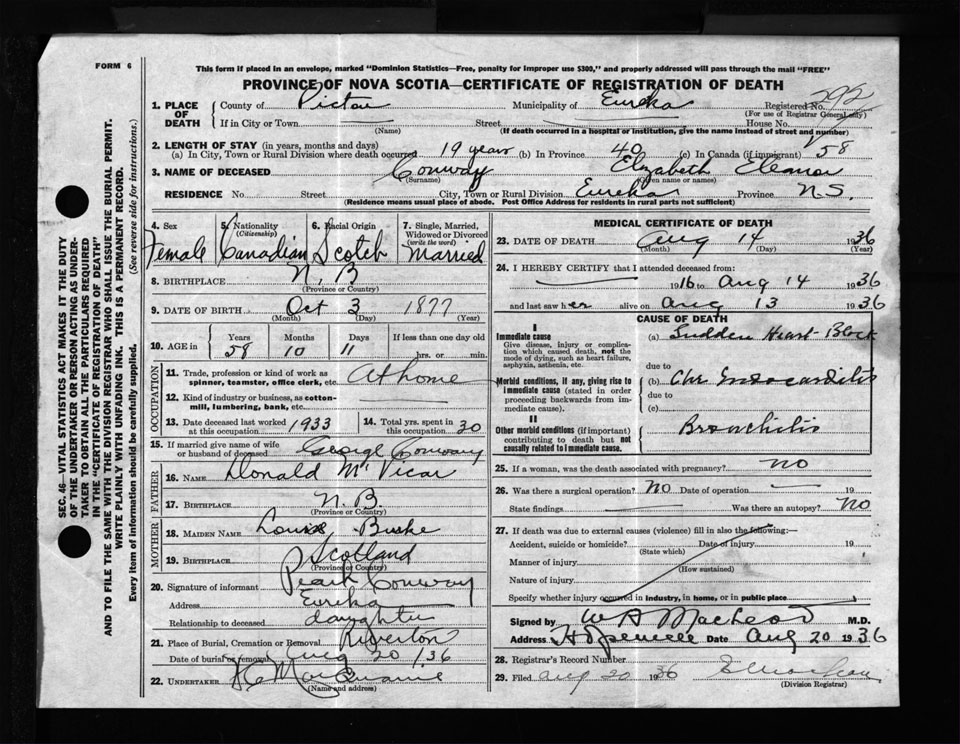 FORM 6
This form if placed in an envelope, marked "Dominion Statistics—Free, penalty for improper use $300," and properly addressed will pass through the mail "FREE"
PROVINCE OF NOVA SCOTIA—CERTIFICATE OF REGISTRATION OF DEATH
1. PLACE OF DEATH County of Pictou Municipality of Eureka Registered No. 292
(For use of Registrar General only)
If in City or Town Street House No.
(Name) (If death occurred in a hospital or institution, give the name instead of street and number)
2. LENGTH OF STAY (in years, months and days)
(a) In City, Town or Rural Division where death occurred 19 years (b) In Province 40 (c) In Canada (if immigrant) 58
3. NAME OF DECEASED Conway Elizabeth Eleanor
(Surname) (Given name or names)
RESIDENCE No. Street City, Town or Rural Division Eureka Province N.S.
(Residence means usual place of abode. Post Office Address for residents in rural parts not sufficient)
4. Sex 5. Nationality (Citizenship) 6. Racial Origin 7. Single, Married, Widowed or Divorced (write the word)
Female Canadian Scotch Married
8. BIRTHPLACE N. B
(Province or Country)
9. DATE OF BIRTH Oct 3 1877
(Month) (Day) (Year)
10. AGE in Years Months Days If less than one day old
58 10 11 hrs. or min.
OCCUPATION
11. Trade, profession or kind of work as spinner, teamster, office clerk, etc. At home
12. Kind of industry or business, as cotton-mill, lumbering, bank, etc.
13. Date deceased last worked at this occupation 1933 14. Total yrs. spent in this occupation 30
15. If married give name of wife or husband of deceased George Conway
FATHER
16. NAME Donald McVicar
17. BIRTHPLACE N. B.
(Province or Country)
MOTHER
18. MAIDEN NAME Burke
19. BIRTHPLACE Scotland
(Province or Country)
20. Signature of informant Pearl Conway
Address Eureka
Relationship to deceased daughter
21. Place of Burial, Cremation or Removal Riverton
Date of burial or removal Aug 20 /36
22. UNDERTAKER
(Name and address)
MEDICAL CERTIFICATE OF DEATH
23. DATE OF DEATH Aug 14 1936
(Month) (Day) (Year)
24. I HEREBY CERTIFY that I attended deceased from:
1916 to Aug 14 1936
and last saw her alive on Aug 13 1936
CAUSE OF DEATH
I
Immediate cause (a) Sudden Heart Block
Give disease, injury or complication which caused death, not the mode of dying, such as heart failure, asphyxia, asthenia, etc.
due to
Morbid conditions, if any, giving rise to immediate cause (stated in order proceeding backwards from immediate cause).
(b) Chr Endocarditis
due to
(c)
II
Other morbid conditions (if important) contributing to death but not causally related to immediate cause.
Bronchitis
25. If a woman, was the death associated with pregnancy? no
26. Was there a surgical operation? NO Date of operation 19
State findings Was there an autopsy? NO
27. If death was due to external causes (violence) fill in also the following:
Accident, suicide or homicide? Date of injury 19
(State which)
Manner of injury
(How sustained)
Nature of injury
Specify whether injury occurred in industry, in home, or in public place
Signed by W A MacLeod M.D.
Address Hopewell Date Aug 20 1936
28. Registrar's Record Number
29. Filed Aug 20 1936
(Division Registrar)
SEC. 46—VITAL STATISTICS ACT MAKES IT THE DUTY
OF THE UNDERTAKER OR PERSON ACTING AS UNDER-
TAKER TO OBTAIN ALL THE PARTICULARS REQUIRED
IN THE "CERTIFICATE OF REGISTRATION OF DEATH"
AND TO FILE THE SAME WITH THE DIVISION REGISTRAR WHO SHALL ISSUE THE BURIAL PERMIT.
WRITE PLAINLY WITH UNFADING INK. THIS IS A PERMANENT RECORD.
Every item of information should be carefully supplied. (See reverse side for instructions.)